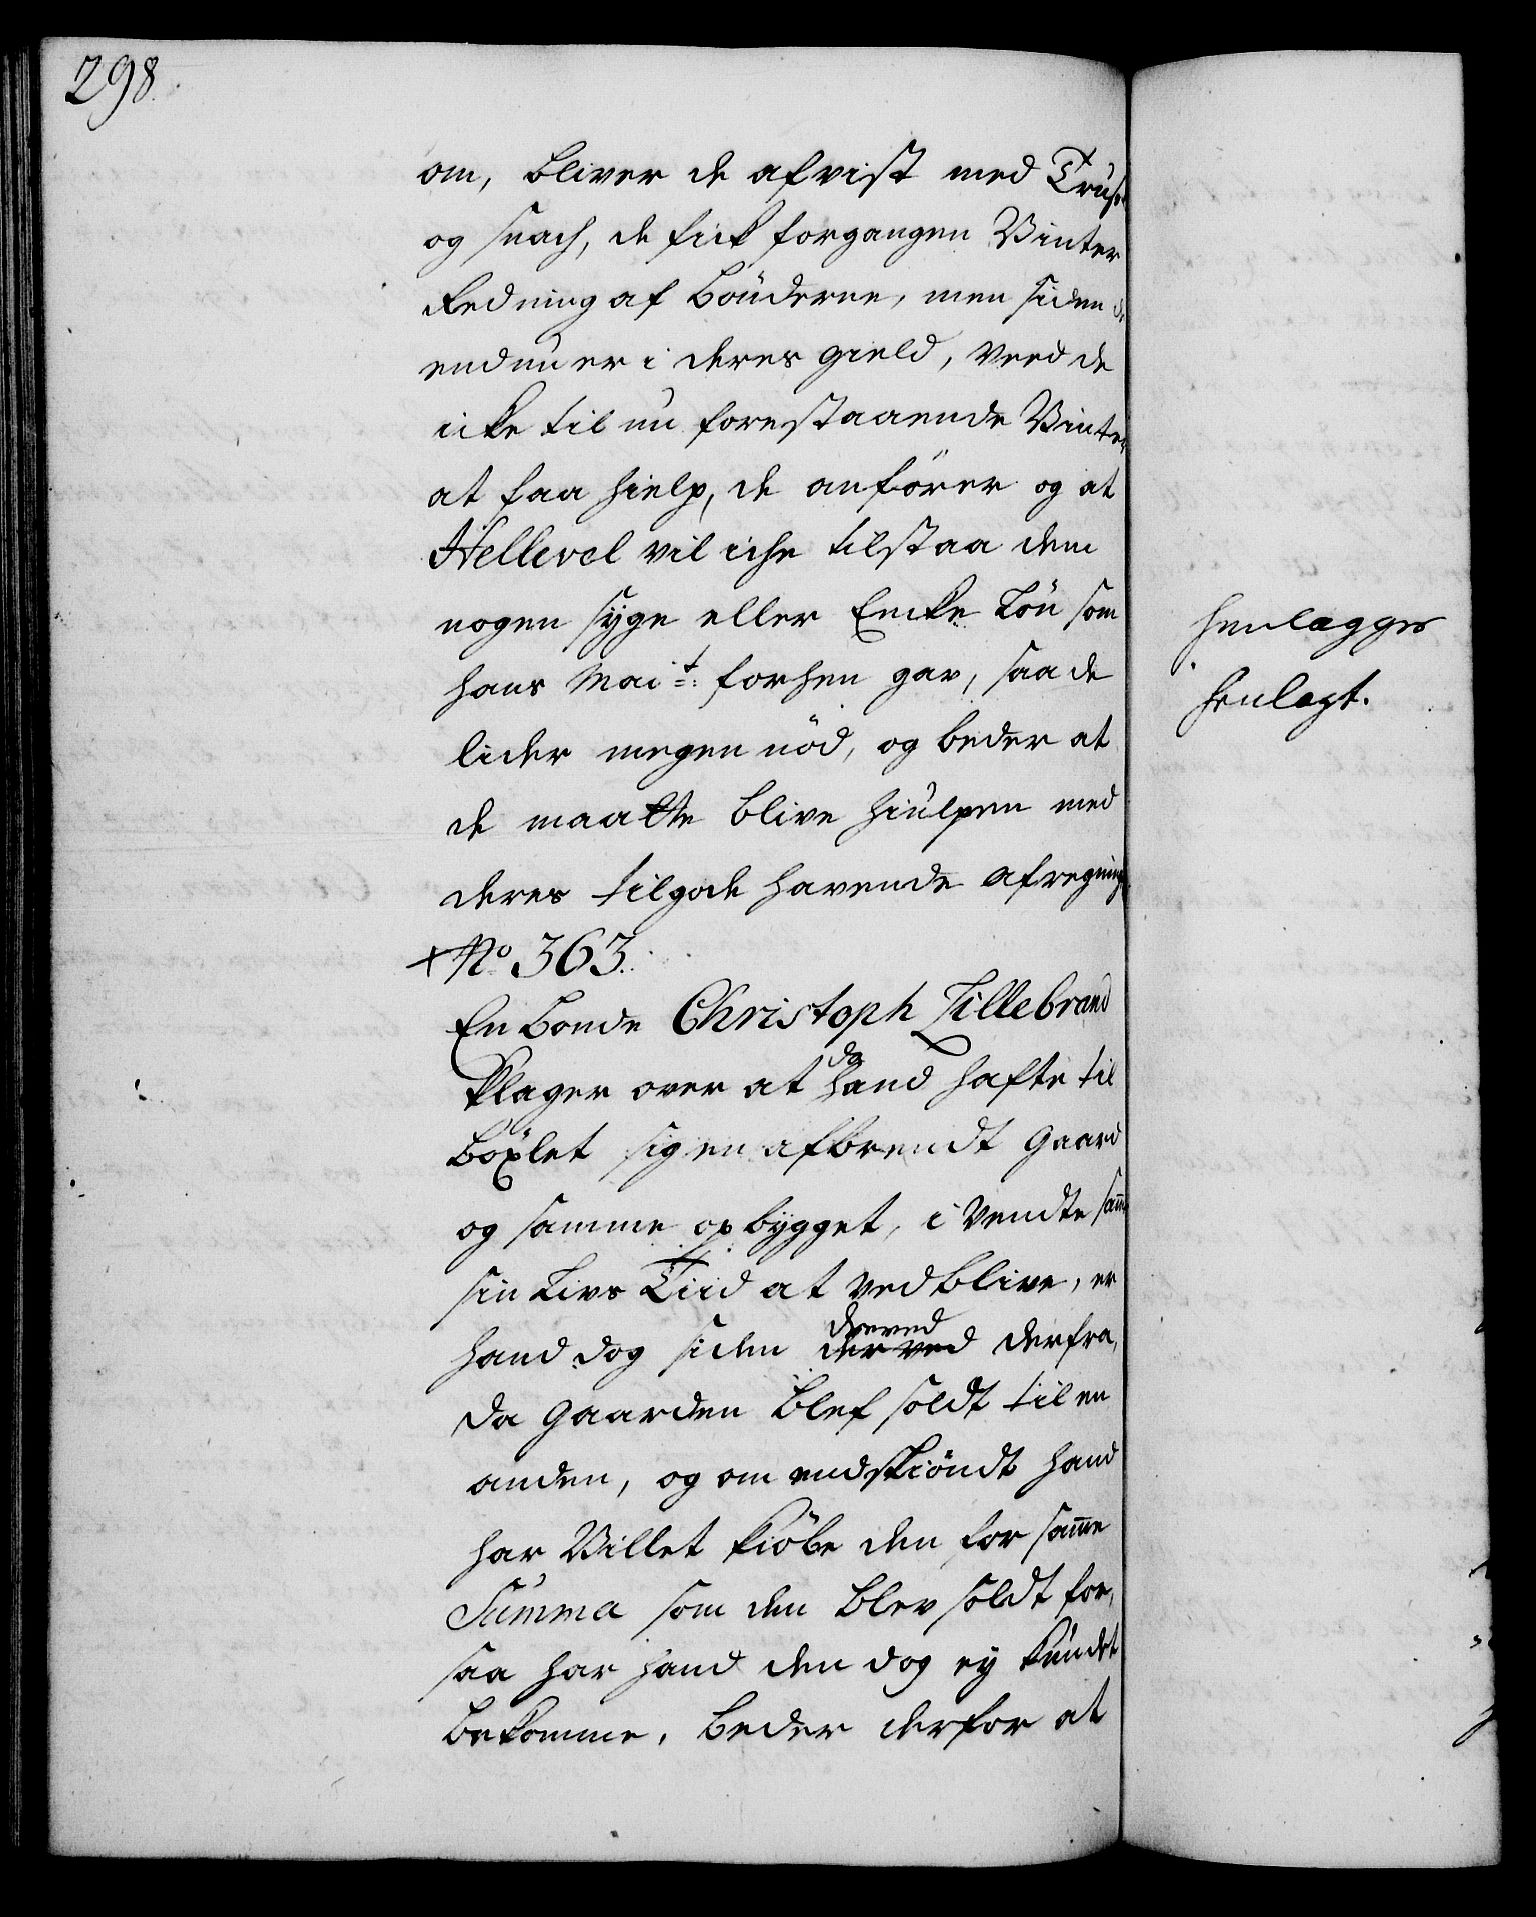 298.
om, bliver de afvist med Trusel
og snach, de fick forgangen Vinter
Redning af bönderne, men siden de
endnu er i deres gield, veed de
icke til nu forestaaende Vinter
at faa hielp, de anförer og at
Hellevel vil iche tilstaa dem
nogen syge eller Encke Lön som
hans Mait: forhen gav, saa de
lider megen nöd, og beder at
de maatte blive hiulpen med
deres tilgode havende afregning
+ No 363.
En bonde Christoph Zillebrand
klager over at da hand hafte til
böxlet sig en afbrendt Gaard
og samme opbygget, i Vendte samme
sin Livs Tiid at vedblive, er
hand dog siden derved dreved derfra,
da Gaarden blef soldt til en
anden, og om endskiöndt hand
har Villet kiöbe den for samme
Summa som den blev soldt for,
saa har hand den dog ey kundet
bekomme, beder derfor at
henlægges
henlagt.